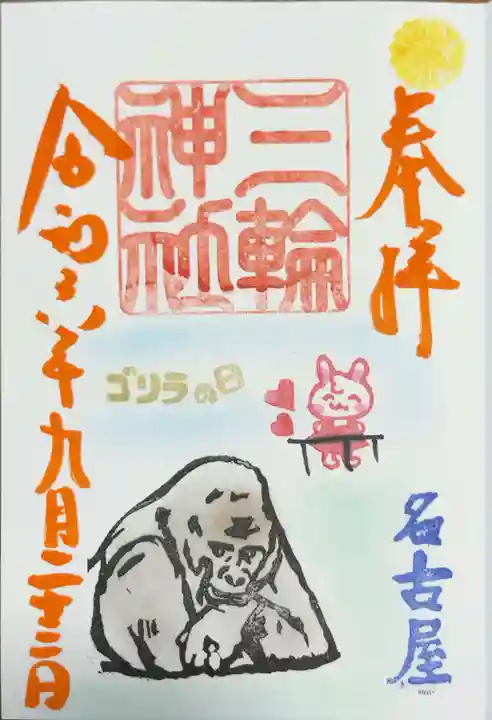 奉拝
三輪
神社
ゴリラの日
名古屋
令和六年九月二十二日